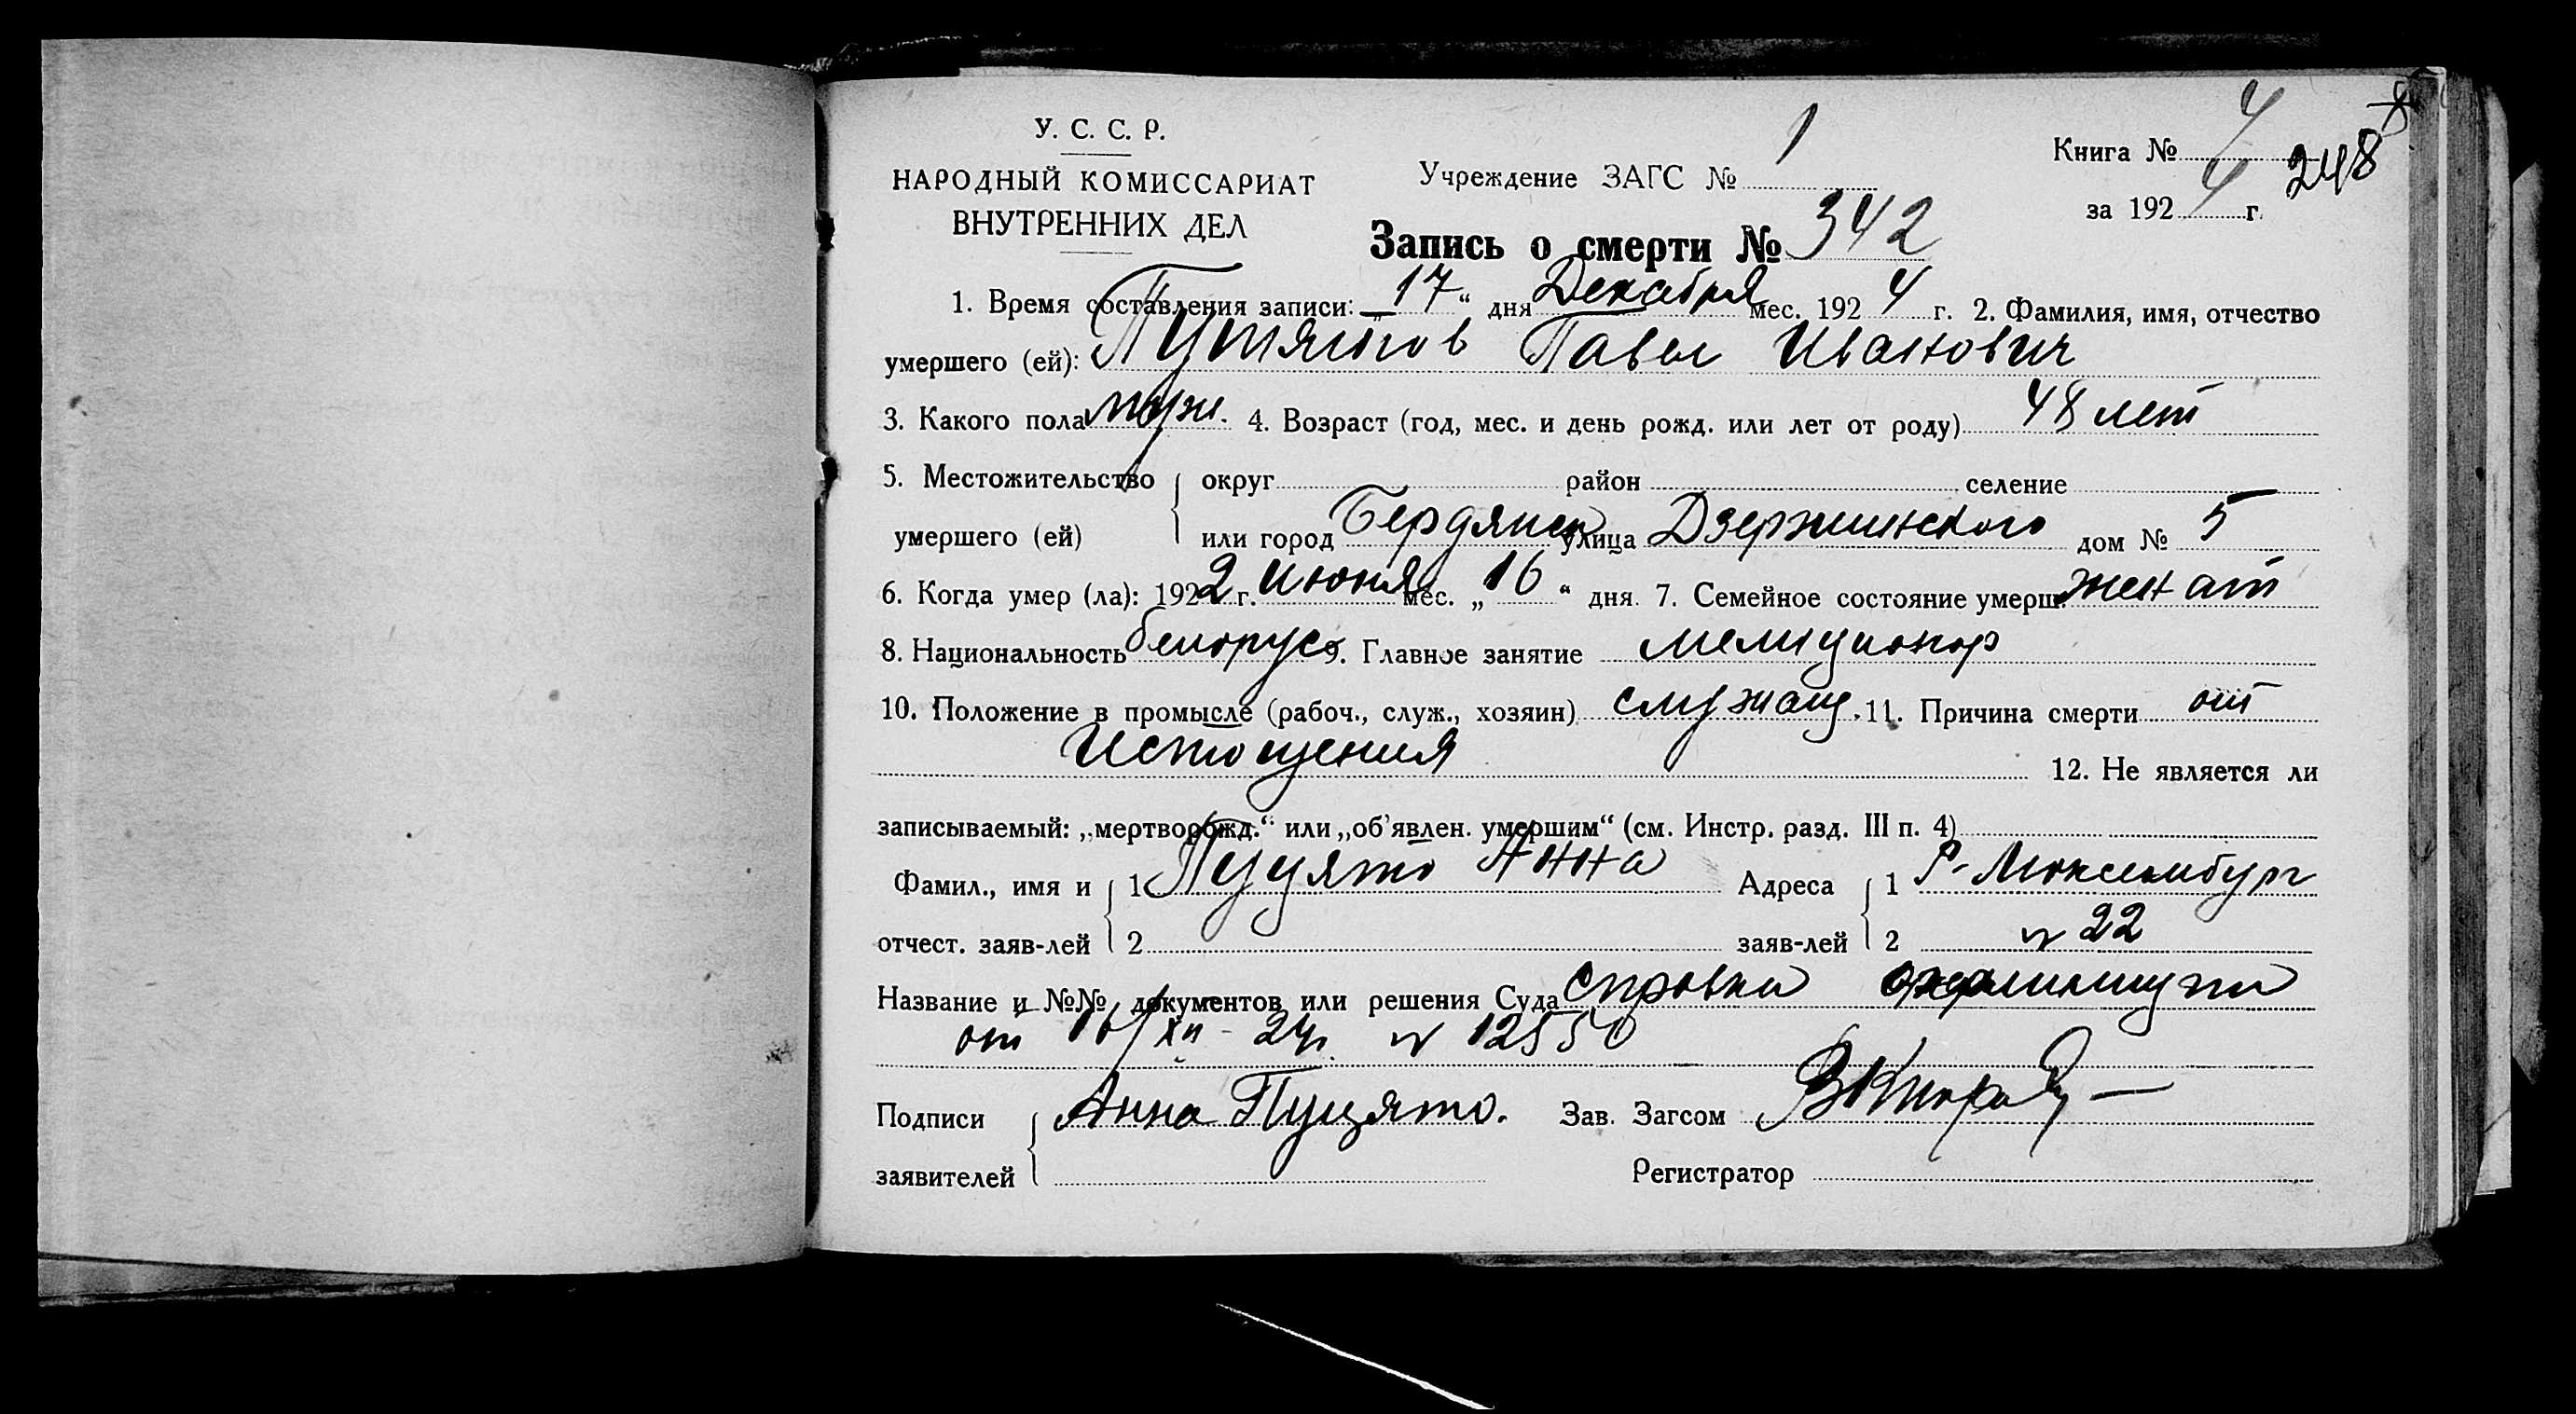 У. С. С. Р.
НАРОДНЫЙ КОМИССАРИАТ
ВНУТРЕННИХ ДЕЛ
Учреждение ЗАГС № 1
Книга № 4
248
за 1924 г.
Запись о смерти № 342
1. Время составления записи: „17“ дня Декабря мес. 1924 г. 2. Фамилия, имя, отчество
умершего (ей): Павел Иванович
3. Какого пола муж. 4. Возраст (год, мес. и день рожд. или лет от роду) 48 лет
5. Местожительство округ район селение
умершего (ей) или город Бердянск улица Дзержинского дом № 5
6. Когда умер (ла): 1922 г. Июня мес. „16“ дня. 7. Семейное состояние умерш. женат
8. Национальность белорус 9. Главное занятие мелиционор
10. Положение в промысле (рабоч., служ., хозяин) служащ. 11. Причина смерти от
Истощения 12. Не является ли
записываемый: „мертворожд.“ или „об'явлен. умершим“ (см. Инстр. разд. III п. 4)
Фамил., имя и 1 Пуцято Анна Адреса 1 Р. Люксембург
отчест. заяв-лей 2 заяв-лей 2 № 22
Название и №№ документов или решения Суда Справка
от 16/XII - 24г. № 12550
Подписи Анна Пуцято. Зав. Загсом
заявителей Регистратор